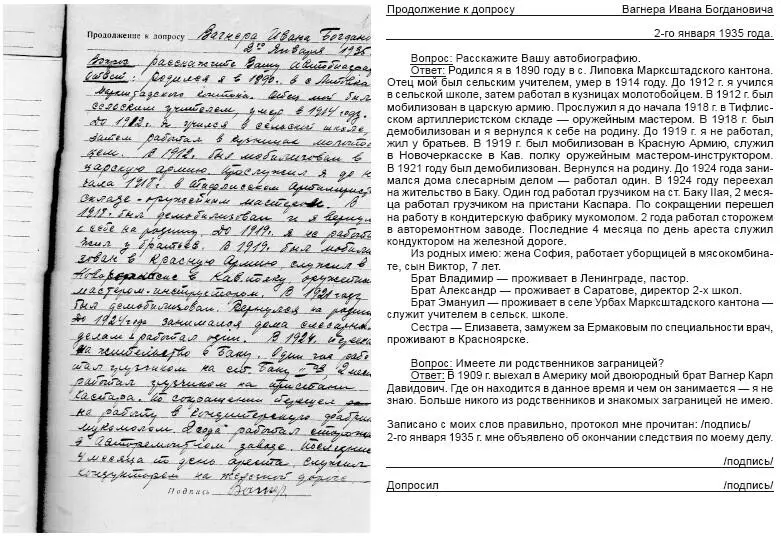 Продолжение к допросу Вагнера Ивана Богдано
2го Января 1935
Вопрос: расскажите Вашу автобиограф
Ответ: Родился я в 1890г. в с. Липовка
Марксштадского кантона. Отец мой был
сельским учителем умер в 1914 году.
До 1912 г. я учился в сельской школе,
затем работал в кузницах молотобой
цем. В 1912г. был мобилизован в
царскую армию. Прослужил я до на
чала 1918г. в Тифлисском Артиллерист
складе - оружейным мастером. В
1918г. был демобилизован и я вернул
к себе на родину. До 1919г. я не работа
жил у братьев. В 1919г. был мобили
зован в Красную Армию, служил в
Новочеркасске в Кав. полку оружейны
мастером-инструктором. В 1921 году
был демобилизован. Вернулся на родин
До 1924 года занимался дома слесарны
делом - работал один. В 1924г. переехал
на жительство в Баку. Один год рабо
тал грузчиком на ст. Баку IIая 2 меся
работал грузчиком на пристани
Каспара. По сокращении перешел
на работу в кондитерскую фабрик
мукомолом. 2 года работал сторожем
в авторемонтном заводе. Последние
4 месяца по день ареста служил
кондуктором на железной дороге
Подпись Вагнер.
Продолжение к допросу Вагнера Ивана Богдановича
2-го января 1935 года.
Вопрос: Расскажите Вашу автобиографию.
Ответ: Родился я в 1890 году в с. Липовка Марксштадского кантона.
Отец мой был сельским учителем, умер в 1914 году. До 1912 г. я учился
в сельской школе, затем работал в кузницах молотобойцем. В 1912 г. был
мобилизован в царскую армию. Прослужил я до начала 1918 г. в Тифлис-
ском артиллеристском складе — оружейным мастером. В 1918 г. был
демобилизован и я вернулся к себе на родину. До 1919 г. я не работал,
жил у братьев. В 1919 г. был мобилизован в Красную Армию, служил
в Новочеркасске в Кав. полку оружейным мастером-инструктором.
В 1921 году был демобилизован. Вернулся на родину. До 1924 года зани-
мался дома слесарным делом — работал один. В 1924 году переехал
на жительство в Баку. Один год работал грузчиком на ст. Баку IIая, 2 меся-
ца работал грузчиком на пристани Каспара. По сокращению перешел
на работу в кондитерскую фабрику мукомолом. 2 года работал сторожем
в авторемонтном заводе. Последние 4 месяца по день ареста служил
кондуктором на железной дороге.
Из родных имею: жена София, работает уборщицей в мясокомбина-
те, сын Виктор, 7 лет.
Брат Владимир — проживает в Ленинграде, пастор.
Брат Александр — проживает в Саратове, директор 2-х школ.
Брат Эмануил — проживает в селе Урбах Марксштадского кантона —
служит учителем в сельск. школе.
Сестра — Елизавета, замужем за Ермаковым по специальности врач,
проживают в Красноярске.
Вопрос: Имеете ли родственников заграницей?
Ответ: В 1909 г. выехал в Америку мой двоюродный брат Вагнер Карл
Давидович. Где он находится в данное время и чем он занимается — я не
знаю. Больше никого из родственников и знакомых заграницей не имею.
Записано с моих слов правильно, протокол мне прочитан: /подпись/
2-го января 1935 г. мне объявлено об окончании следствия по моему делу.
/подпись/
Допросил /подпись/